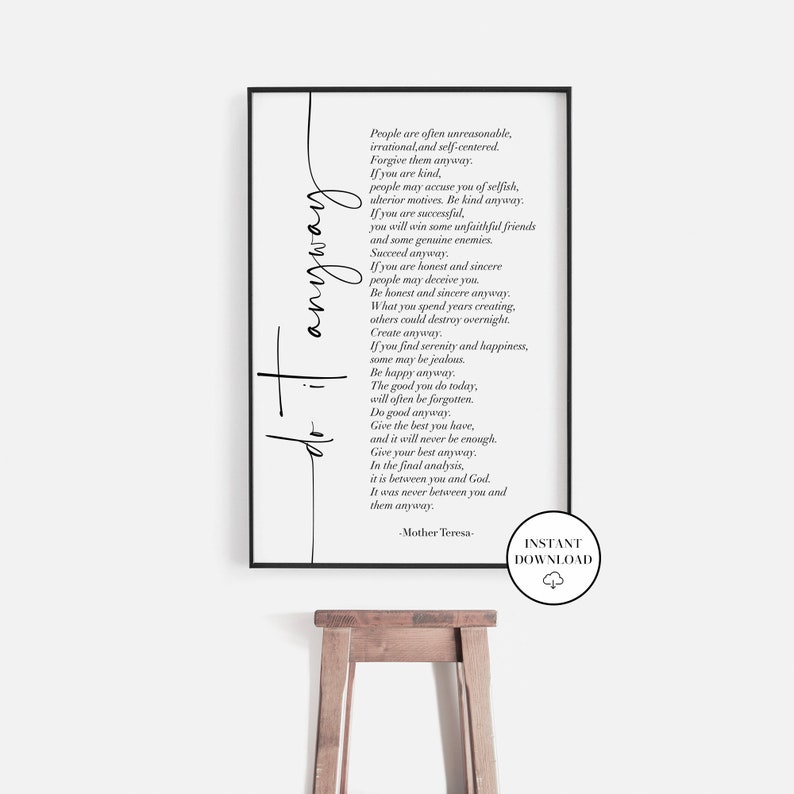 do it anyway
People are often unreasonable,
irrational,and self-centered.
Forgive them anyway.
If you are kind,
people may accuse you of selfish,
ulterior motives. Be kind anyway.
If you are successful,
you will win some unfaithful friends
and some genuine enemies.
Succeed anyway.
If you are honest and sincere
people may deceive you.
Be honest and sincere anyway.
What you spend years creating,
others could destroy overnight.
Create anyway.
If you find serenity and happiness,
some may be jealous.
Be happy anyway.
The good you do today,
will often be forgotten.
Do good anyway.
Give the best you have,
and it will never be enough.
Give your best anyway.
In the final analysis,
it is between you and God.
It was never between you and
them anyway.
-Mother Teresa-
INSTANT
DOWNLOAD